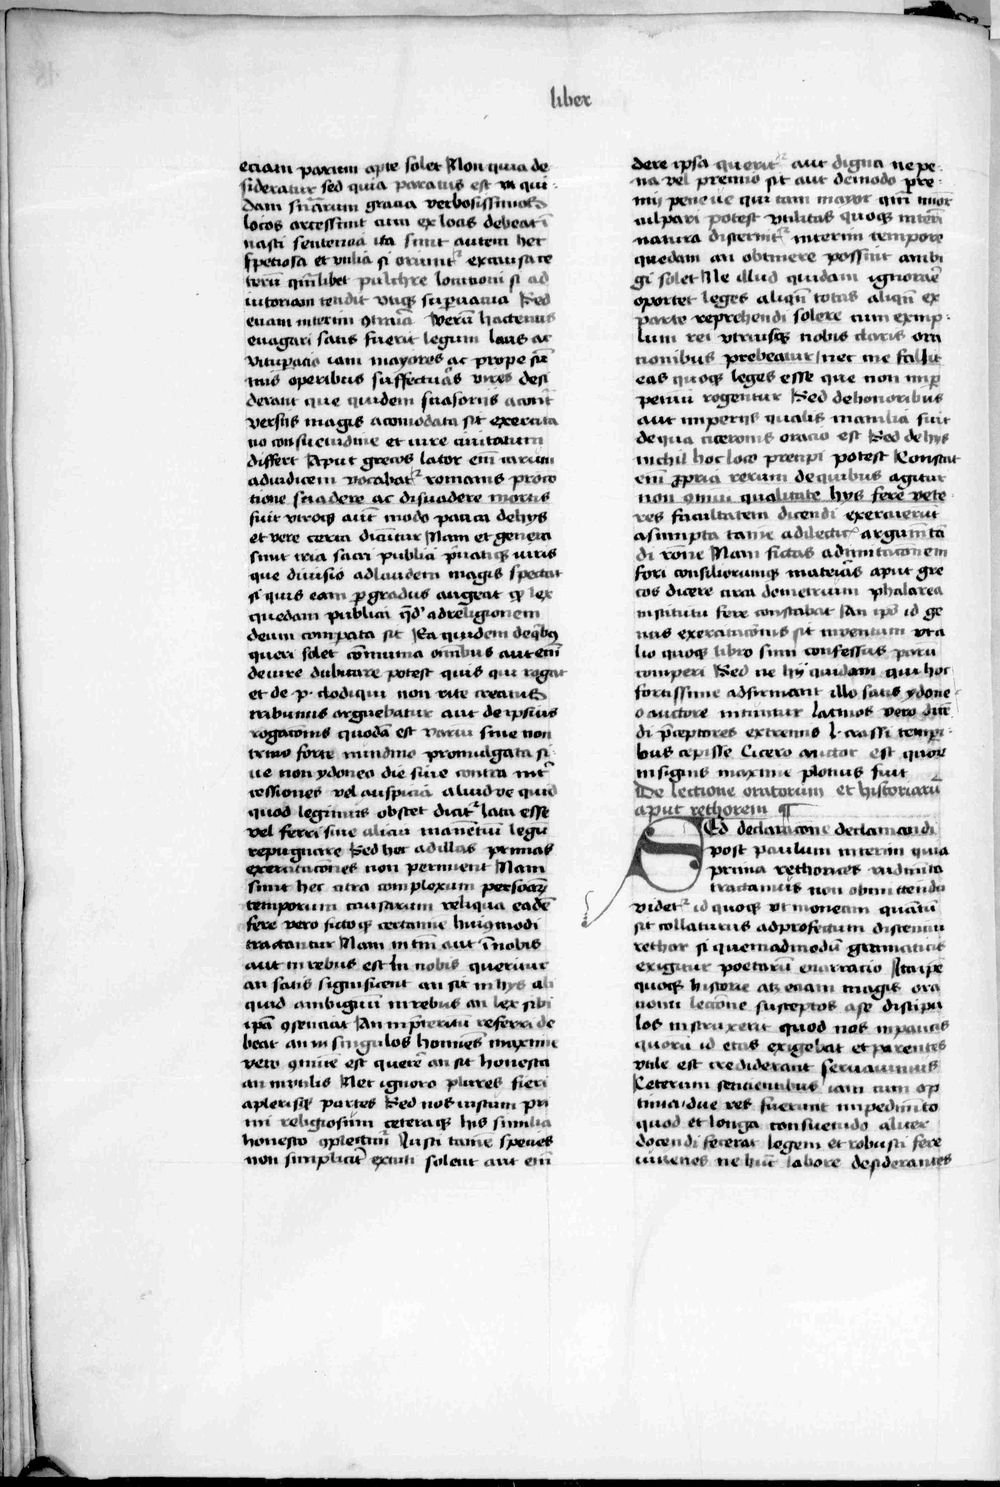 liber
eciam parum apte solet Non quia de
sideratur sed quia paratus est vt qui
dam sn̄arum gracia verbosissimos
locos arcessunt cum ex locis debeat ī
nasti sentencia ita sunt autem hec
speciosa et vtilia si oriunt͛ ex causa ce
terū qm̄libet pulchre locucioni si ad
iutorium tendit vtiqꝫ supuacua Sed
eciam interim ꝯtraria Verū hactenus
euagari satis fuerit legum laus ac
vituperacio iam mayores ac prope sum̄
mis operibus suffecturas vires desi
derant que quidem suasoriis an cont͛
versiis magis acomodata sit exercita
cio consuetudine et iure ciuitatum
differt Aput grecos lator em̄ earum
ad iudicem vocabat͛ romanis pro co
tione suadere ac disuadere moris
fuit vtroqꝫ aut̄ modo pauca de hys
et vere certa dicūtur Nam et genera
sunt tria sacri publici p̄uatiqꝫ iuris
que diuisio ad laudem magis spectat
si quis eam p gradus augeat qꝫ lex
quedam publica qd̓ ad religionem
deum comparata sit Ea quidem de qbꝫ
queri solet cōmunia omibus aut em̄
de iure dubitare potest quis qui rogat
et de p. clodi qui non rite creatus
tribunus arguebatur aut de ipsius
rogacionis quodā est variū siue non
trino forte nundino promulgata si
ue non ydoneo die siue contra int͛
cessiones vel auspicia aliud ve quid
quod legimis obstet dicit͛ lata esse
vel ferri siue alicui manenciū legū
repugnare Sed hec ad illas primas
exercitacōnes non pertinent Nam
sunt hec citra complexum personaꝝ
temporum causarum reliqua eadē
fere vero fictoqꝫ certamine huiꝯmodi
tractantur Nam in tm̄ aut ī nobis
aut in rebus est In nobis queritur
an satis significent an sit in hys ali
quid ambiguū in rebus an lex sibi
ipā ꝯsenciat An in p̄teritū referri de
beat an in singulos homīes maxime
vero ꝯmune est querē an sit honesta
an inutilis Nec ignoro plures fieri
a plerisqꝫ partes Sed nos iustum pi
um religiosum ceteraqꝫ his similia
honesto ꝯplectim͛ Justi tamē species
non simplicit͛ excuti solent aut em̄
dere ipsa querit͛ aut digna ne pe
na vel premio sit aut de modo pre
mij pene ue qui tam mayor qm̄ minor
culpari potest vtilitas quoqꝫ interī
natura discernit͛ interim tempore
quedam an obtinere possint ambi
gi solet Ne illud quidam ignorare
oportet leges aliqn̄ totas aliqn̄ ex
parte reprehendi solere cum exemp
lum rei vtriusqꝫ nobis claris ora
cionibus prebeatur nec me fallit
eas quoqꝫ leges esse que non in per
petuū rogentur Sed de honoribus
aut imperijs qualis manilia fuit
de qua ciceronis oracio est Sed de hys
nichil hoc loco precipi potest Constat
em̄ ꝓpria rerum de quibus agitur
non omni qualitate hys fere vete
res facultatem dicendi exercuerūt
asumpta tamē a dilecticis argumētā
di rōne Nam fictas ad imitaconem
fori consiliorumqꝫ materias aput gre
cos dicere circa demetrium phalarea
institutu fere constabat An ip̄o id ge
nus exercitacōnis sit inuentum vt a
lio quoqꝫ libro sum confessus parū
comperi Sed ne hy quidam qui hoc
fortissime adfirmant illo satis ydone
o auctore nituntur latinos vero dicē
di p̄ceptores extremis L. crassi tempi
bus cepisse Cicero auctor est quoꝝ
insignis maxime plotius fuit
De lectione oratorum et historiarū
aput rethorem ¶
SEd declaracione declamandi
post paulum interim quia
prima rethorices rudimēta
tractamus non obmittendū
videt͛ id quoqꝫ vt moneam quātū
sit collaturus ad profectum discentiū
rethor si quemadmodū gramaticis
exigitur poetarū enarracio Ita ipē
quoqꝫ historie atqꝫ eciam magis ora
cionū lectōne susceptos a se discipu
los instruxerit quod nos in paucis
quorū id etas exigebat et parentes
vtile est crediderant seruauimus
Ceterum sencientibus iam tum op
tima due res fuerunt impedimēto
quod et longa consuetudo aliter
docendi fecerat legem et robusti fere
iuuenes ne hūc labore desiderantes